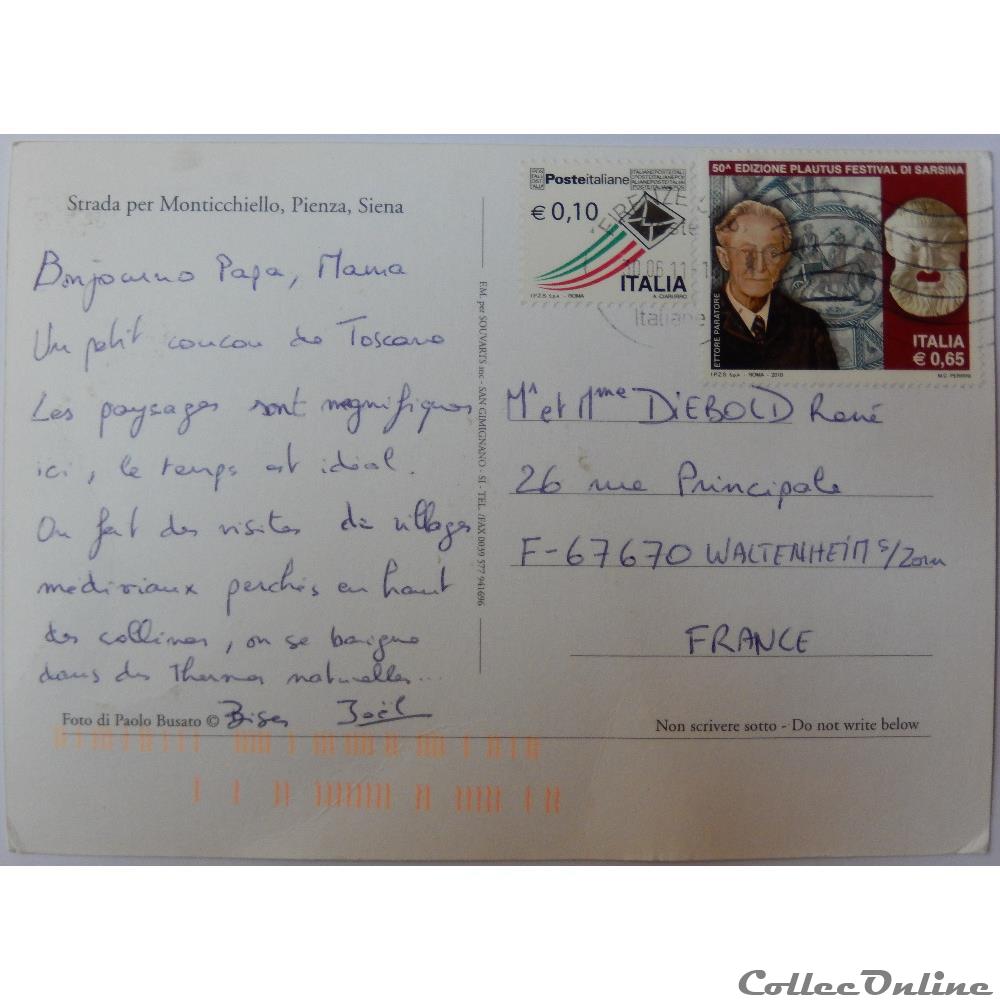 Strada per Monticchiello, Pienza, Siena
Bonjourno Papa, Mama
Un petit coucou de Toscane
Les paysages sont magnifiques
ici, le temps est idéal.
On fait des visites de villages
médiévaux perchés en haut
des collines, on se baigne
dans des Thermes naturelles...
Bises Joël
Foto di Paolo Busato ©
E.M. per SOUVARTS inc - SAN GIMIGNANO - SI - TEL. /FAX 0039 577 941696
Posteitaliane
€ 0,10
ITALIA
I.P.Z.S. S.p.A. - ROMA
A. CIABURRO
FIRENZE
30.06.11
Italiane
50ᴬ EDIZIONE PLAUTUS FESTIVAL DI SARSINA
ETTORE PARATORE
ITALIA
€ 0,65
I.P.Z.S. S.p.A. - ROMA - 2010
M.C. PERRINI
Mr et Mme DIEBOLD René
26 rue Principale
F-67670 WALTENHEIM s/Zorn
FRANCE
Non scrivere sotto - Do not write below
CollecOnline